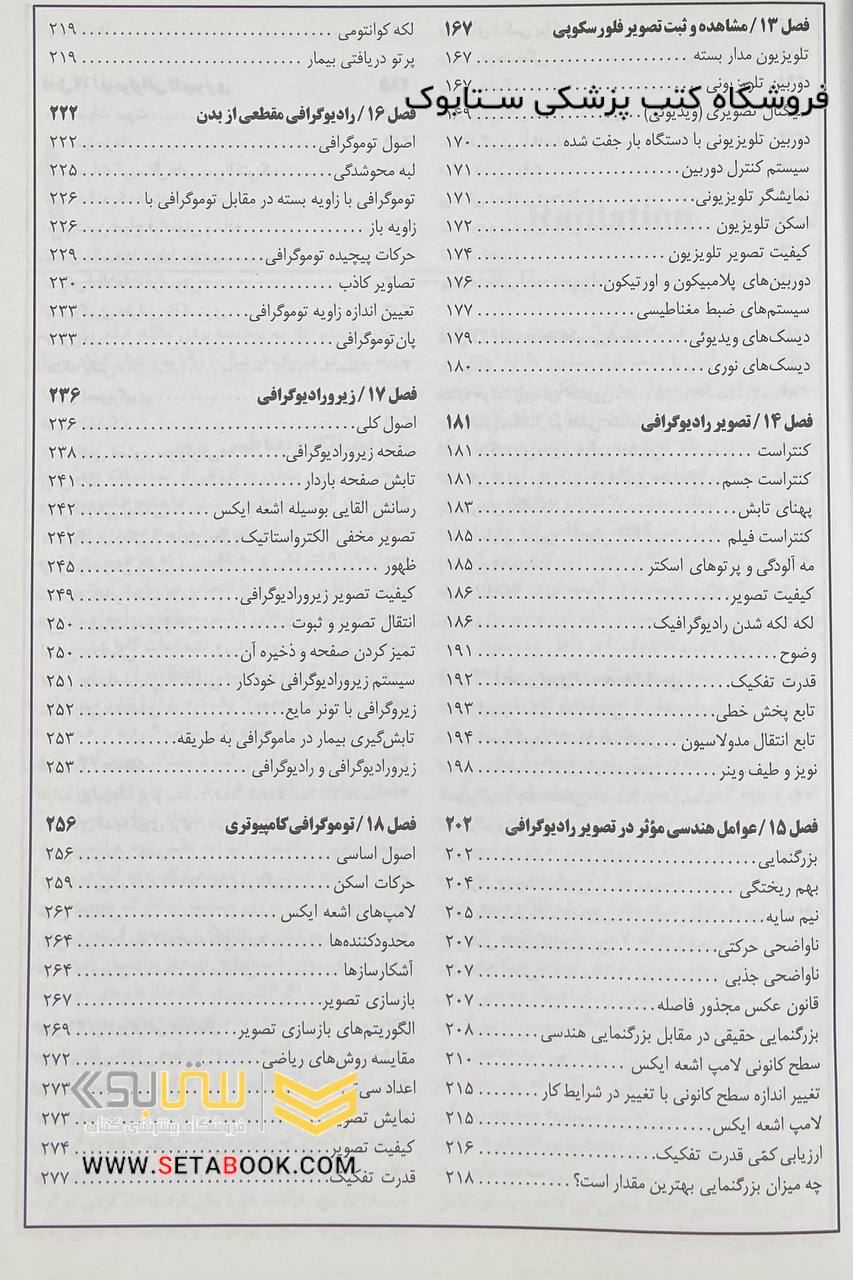 فصل ۱۳/ مشاهده و ثبت تصویر فلورسکوپی ۱۶۷
تلویزیون مدار بسته ........................ ۱۶۷
دوربین تلویزیونی ........................ ۱۶۷
فروشگاه کتب پزشکی ستابوک
سیگنال تصویری (ویدیوئی) ........................ ۱۶۹
دوربین تلویزیونی با دستگاه بار جفت شده .......... ۱۷۰
سیستم کنترل دوربین ........................ ۱۷۱
نمایشگر تلویزیونی ........................ ۱۷۱
اسکن تلویزیون ........................ ۱۷۲
کیفیت تصویر تلویزیون ........................ ۱۷۴
دوربین‌های پلامبیکون و اورتیکون ............... ۱۷۶
سیستم‌های ضبط مغناطیسی ........................ ۱۷۷
دیسک‌های ویدیوئی ........................ ۱۷۹
دیسک‌های نوری ........................ ۱۸۰
فصل ۱۴/ تصویر رادیوگرافی ۱۸۱
کنتراست ........................ ۱۸۱
کنتراست جسم ........................ ۱۸۱
پهنای تابش ........................ ۱۸۳
کنتراست فیلم ........................ ۱۸۵
مه آلودگی و پرتوهای اسکتر ........................ ۱۸۵
کیفیت تصویر ........................ ۱۸۶
لکه لکه شدن رادیوگرافیک ........................ ۱۸۶
وضوح ........................ ۱۹۱
قدرت تفکیک ........................ ۱۹۲
تابع پخش خطی ........................ ۱۹۳
تابع انتقال مدولاسیون ........................ ۱۹۴
نویز و طیف وینر ........................ ۱۹۸
فصل ۱۵/ عوامل هندسی مؤثر در تصویر رادیوگرافی ۲۰۲
بزرگنمایی ........................ ۲۰۲
بهم ریختگی ........................ ۲۰۴
نیم سایه ........................ ۲۰۵
ناواضحی حرکتی ........................ ۲۰۷
ناواضحی جذبی ........................ ۲۰۷
قانون عکس مجذور فاصله ........................ ۲۰۷
بزرگنمایی حقیقی در مقابل بزرگنمایی هندسی .......... ۲۰۸
سطح کانونی لامپ اشعه ایکس ........................ ۲۱۰
تغییر اندازه سطح کانونی با تغییر در شرایط کار .......... ۲۱۵
لامپ اشعه ایکس ........................ ۲۱۵
ارزیابی کمّی قدرت تفکیک ........................ ۲۱۶
چه میزان بزرگنمایی بهترین مقدار است؟ ............ ۲۱۸
لکه کوانتومی ........................ ۲۱۹
پرتو دریافتی بیمار ........................ ۲۱۹
فصل ۱۶/ رادیوگرافی مقطعی از بدن ۲۲۲
اصول توموگرافی ........................ ۲۲۲
لبه محوشدگی ........................ ۲۲۵
توموگرافی با زاویه بسته در مقابل توموگرافی با ........ ۲۲۶
زاویه باز ........................ ۲۲۶
حرکات پیچیده توموگرافی ........................ ۲۲۹
تصاویر کاذب ........................ ۲۳۰
تعیین اندازه زاویه توموگرافی ........................ ۲۳۳
پان‌توموگرافی ........................ ۲۳۳
فصل ۱۷/ زیرورادیوگرافی ۲۳۶
اصول کلی ........................ ۲۳۶
صفحه زیرورادیوگرافی ........................ ۲۳۸
تابش صفحه باردار ........................ ۲۴۱
رسانش القایی بوسیله اشعه ایکس ................ ۲۴۲
تصویر مخفی الکترواستاتیک ........................ ۲۴۲
ظهور ........................ ۲۴۵
کیفیت تصویر زیرورادیوگرافی ........................ ۲۴۹
انتقال تصویر و ثبوت ........................ ۲۵۰
تمیز کردن صفحه و ذخیره آن ........................ ۲۵۰
سیستم زیرورادیوگرافی خودکار ................ ۲۵۱
زیروگرافی با تونر مایع ........................ ۲۵۲
تابش‌گیری بیمار در ماموگرافی به طریقه ............ ۲۵۳
زیرورادیوگرافی و رادیوگرافی ................ ۲۵۳
فصل ۱۸/ توموگرافی کامپیوتری ۲۵۶
اصول اساسی ........................ ۲۵۶
حرکات اسکن ........................ ۲۵۹
لامپ‌های اشعه ایکس ........................ ۲۶۳
محدودکننده‌ها ........................ ۲۶۴
آشکارسازها ........................ ۲۶۴
بازسازی تصویر ........................ ۲۶۷
الگوریتم‌های بازسازی تصویر ................ ۲۶۹
مقایسه روش‌های ریاضی ................ ۲۷۲
اعداد سی‌تی ........................ ۲۷۳
نمایش تصویر ........................ ۲۷۳
کیفیت تصویر ........................ ۲۷۴
قدرت تفکیک ........................ ۲۷۷
ستابوک
فروشگاه اینترنتی کتاب
WWW.SETABOOK.COM